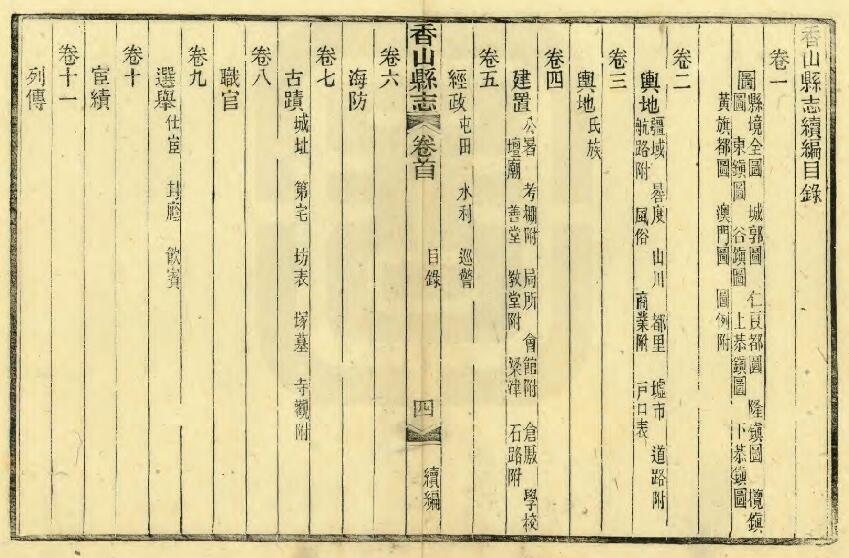 香山縣志續編目錄
卷一
圖 縣境全圖 城郭圖 仁良都圖 隆鎮圖 欖鎮
圖 東鎮圖 谷鎮圖 上恭鎮圖 下恭鎮圖
黃旗都圖 澳門圖 圖例附
卷二
輿地 疆域 晷度 山川 都里 墟市 道路附
航路附 風俗 商業附 戶口表
卷三
輿地 氏族
卷四
建置 公署 考棚附 局所 會館附 倉厫 學校
壇廟 善堂 敎堂附 梁津 石路附
卷五
經政 屯田 水利 巡警
香山縣志 卷首 目錄 四 續編
卷六
海防
卷七
古蹟 城址 第宅 坊表 塚墓 寺觀附
卷八
職官
卷九
選舉 仕宦 封廕 飮賓
卷十
宦績
卷十一
列傳